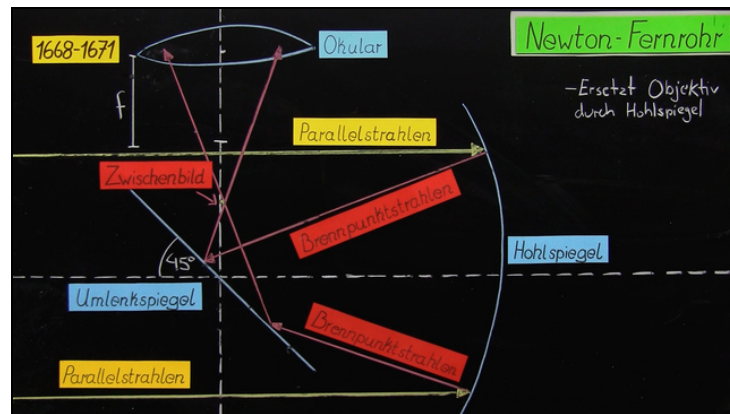 1668-1671
Okular
Newton-Fernrohr
-Ersetzt Objektiv
durch Hohlspiegel
f
Parallelstrahlen
Zwischenbild
Brennpunktstrahlen
45°
Hohlspiegel
Umlenkspiegel
Brennpunktstrahlen
Parallelstrahlen